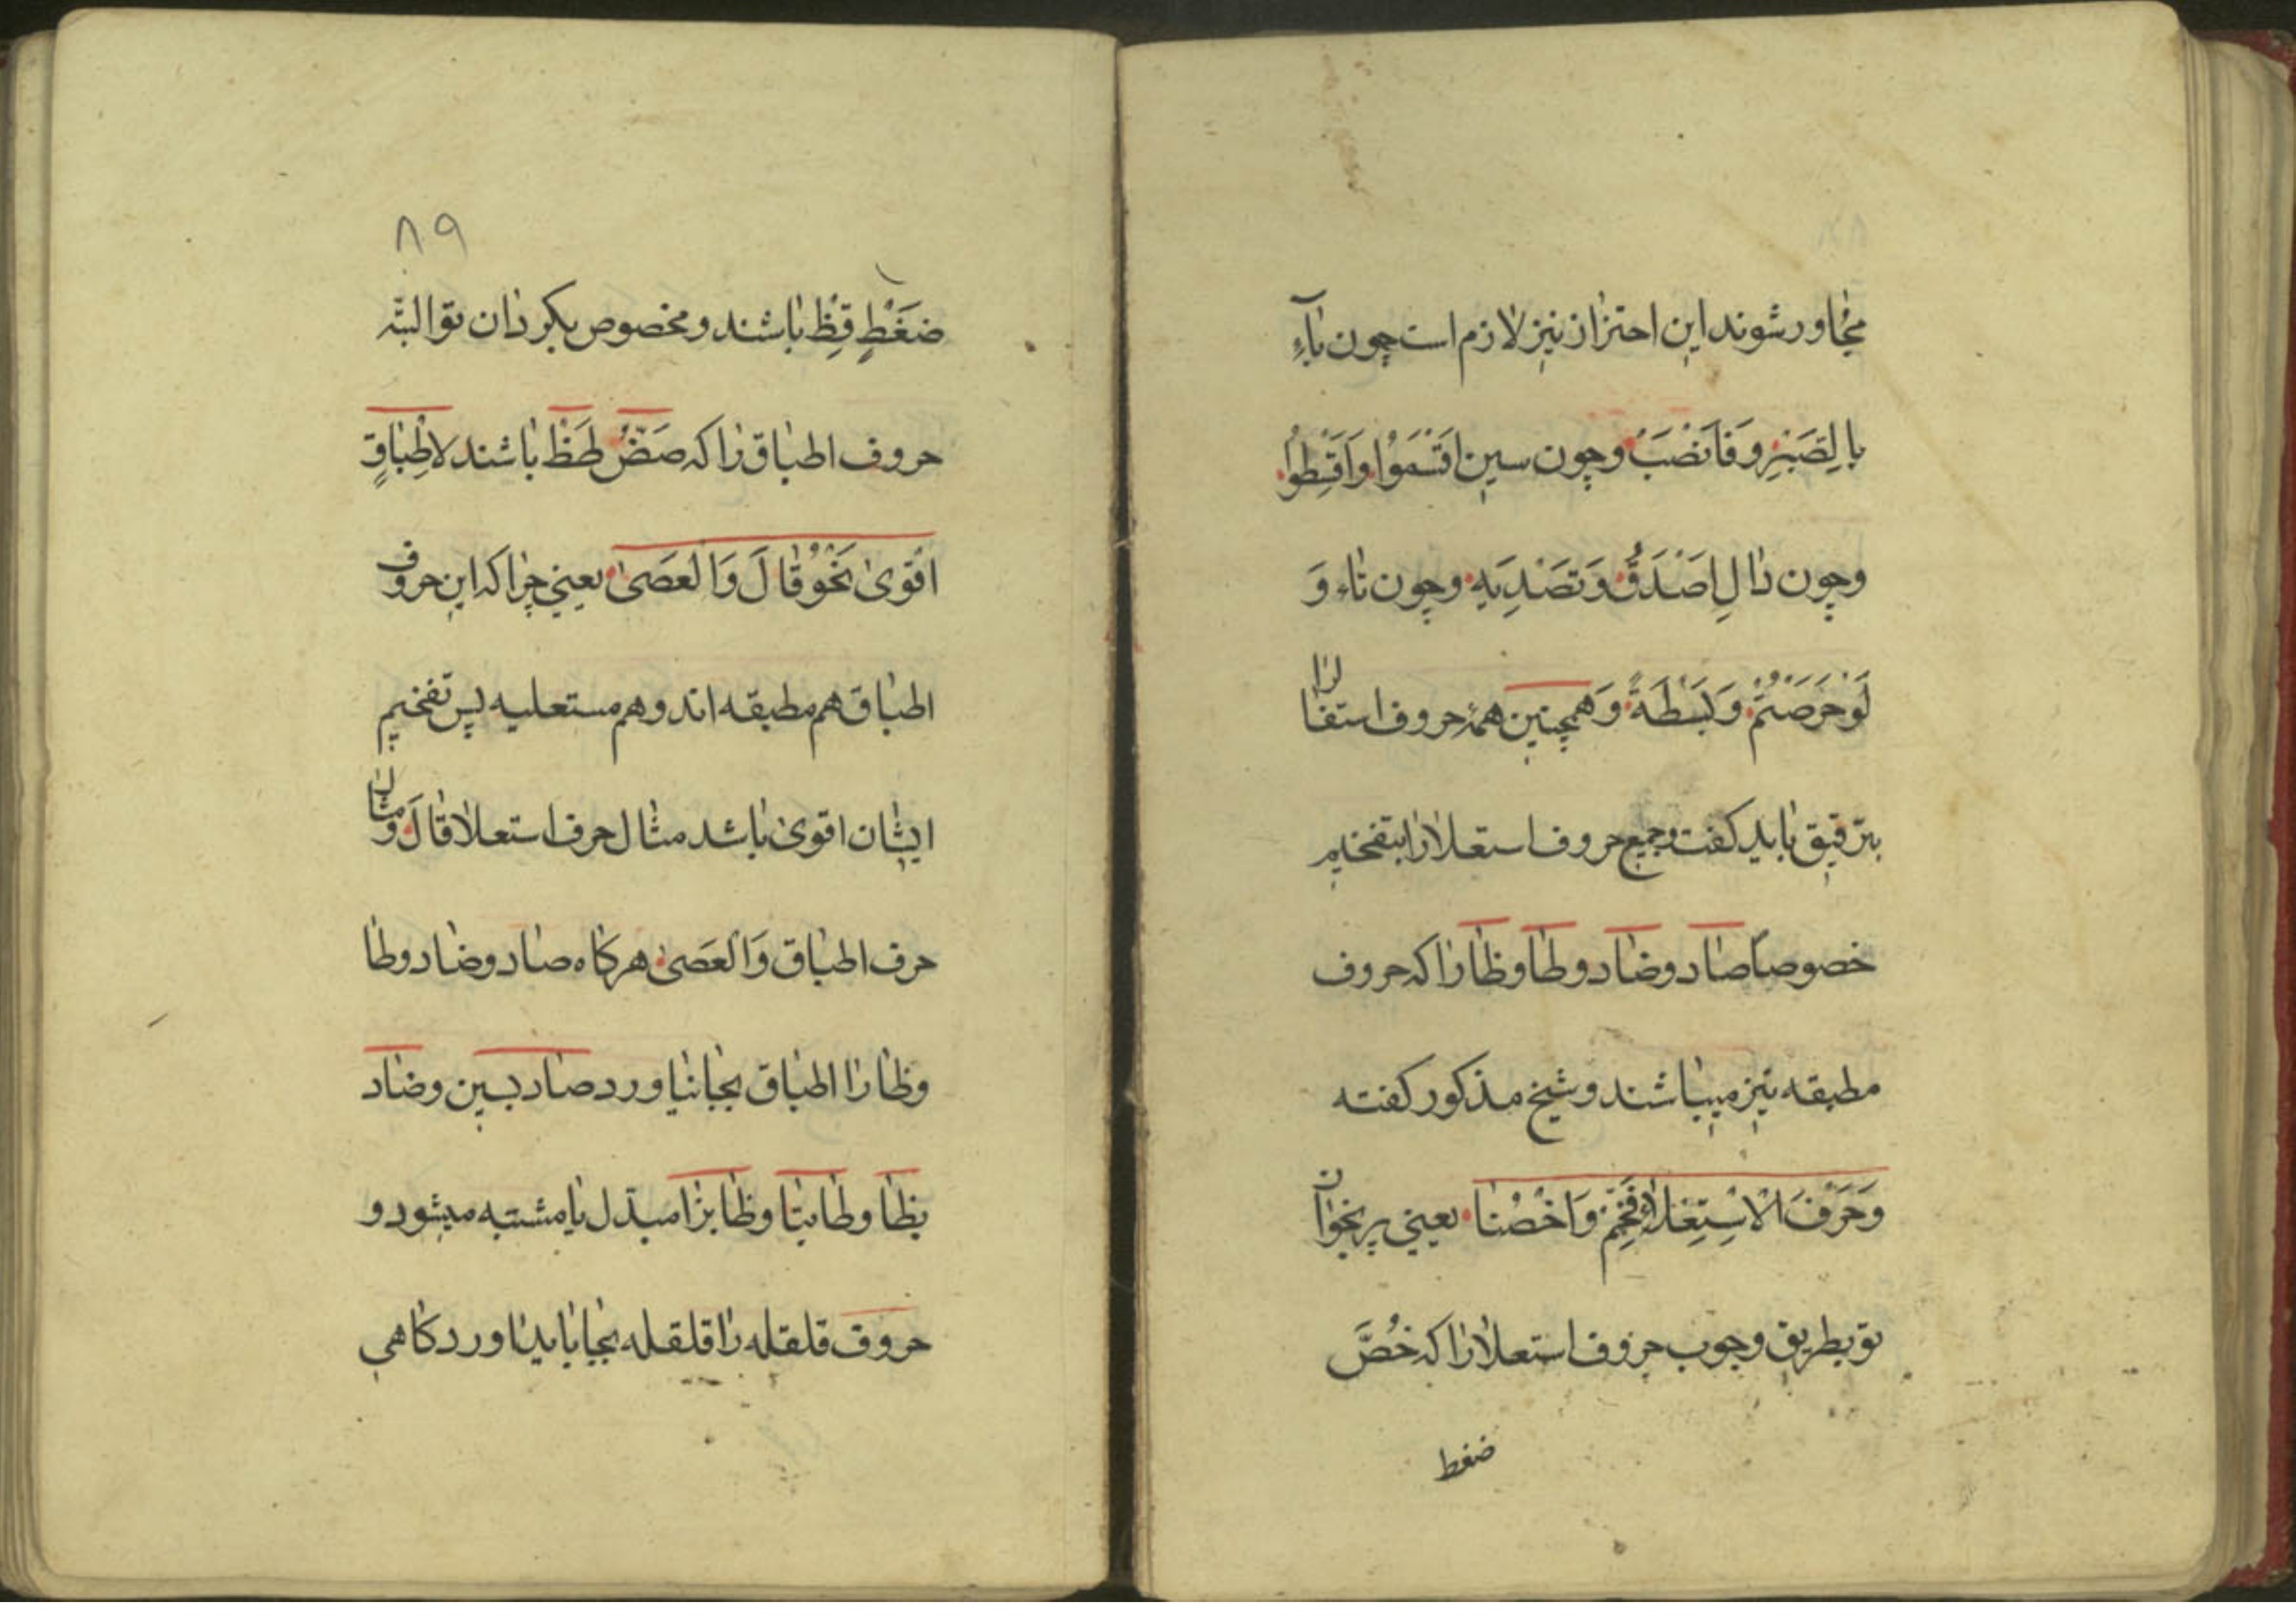 مجاور شوند این احتراز نیز لازم است چون بآءِ
بِالصَبْرِ وَفَانْصَبْ وچون سین اقْسَمُوا وَاَقْسِطُوا
وچون دٰالِ اَصْدَقُ وَتَصْدِيَه وچون تاء وَ
لَوْحَرَصْتُمْ وَبَسْطَةً وَهمچنین همهٔ حروف استفال را
بترقیق باید کفت وجمیع حروف استعلا را بتفخیم
خصوصاً صاد وضاد وطا وظا را که حروف
مطبقه نیز میباشند وشیخ مذکور کفته
وَحَرْفَ الْاِسْتِعْلاءِ فَخِّمْ وَاخْصُصْنا یعنی پر بخوان
تو بطریق وجوب حروف استعلا را که خُصَّ
ضغط
٨٩
ضَغْطٍ قِظْ باشند ومخصوص بکردان تو البتّه
حروف اطباق را که صَضْ طَظْ باشند لاطْبٰاقٍ
اقْویٰ نَحْوُ قٰالَ وَالْعَصیٰ یعنی چرا که این حروف
اطباق هم مطبقه اند وهم مستعلیه پس تفخیم
ایشان اقویٰ باشد مثال حرف استعلا قٰالَ ومثال
حرف اطباق وَالْعَصیٰ هر کاه صاد وضاد وطا
وظا را اطباق بجا نیاورد صاد بسین وضاد
بظا وطا بتا وظا بزا مبدّل یا مشتبه میشود و
حروف قلقله را قلقله بجا باید اورد کاهی